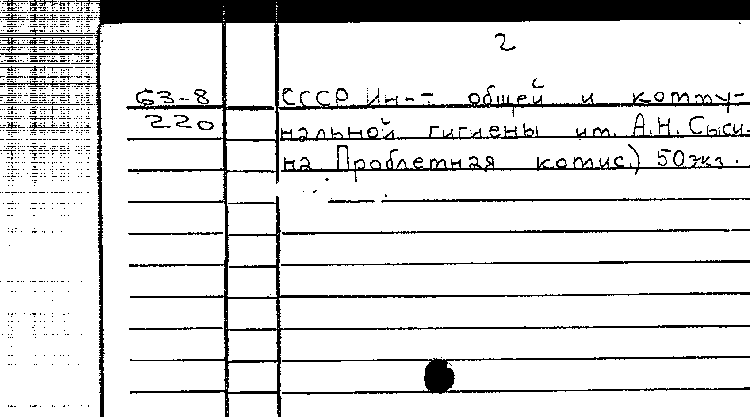 2
63-8 СССР Ин-т общей и комму-
220 нальной гигиены им. А.Н. Сыси-
на Проблемная комис.) 50 экз.